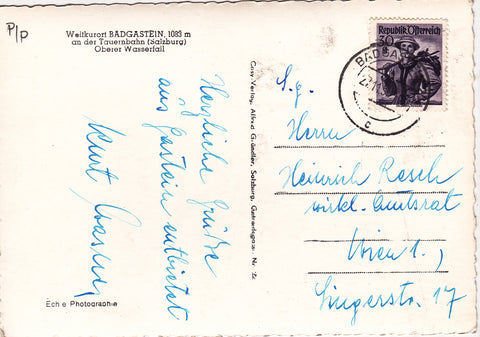 P/P
Weltkurort BADGASTEIN, 1083 m
an der Tauernbahn (Salzburg)
Oberer Wasserfall
Herzliche Grüße
aus Gastein entbietet
Kurt
Echte Photographie
Cosy-Verlag, Alfred Gründler, Salzburg, Getreidegasse Nr. 22
Republik Österreich
30
BADGA
c
S. g.
Herrn
Heinrich Resch
wirkl. Amtsrat
Wien 1.,
Singerstr. 17